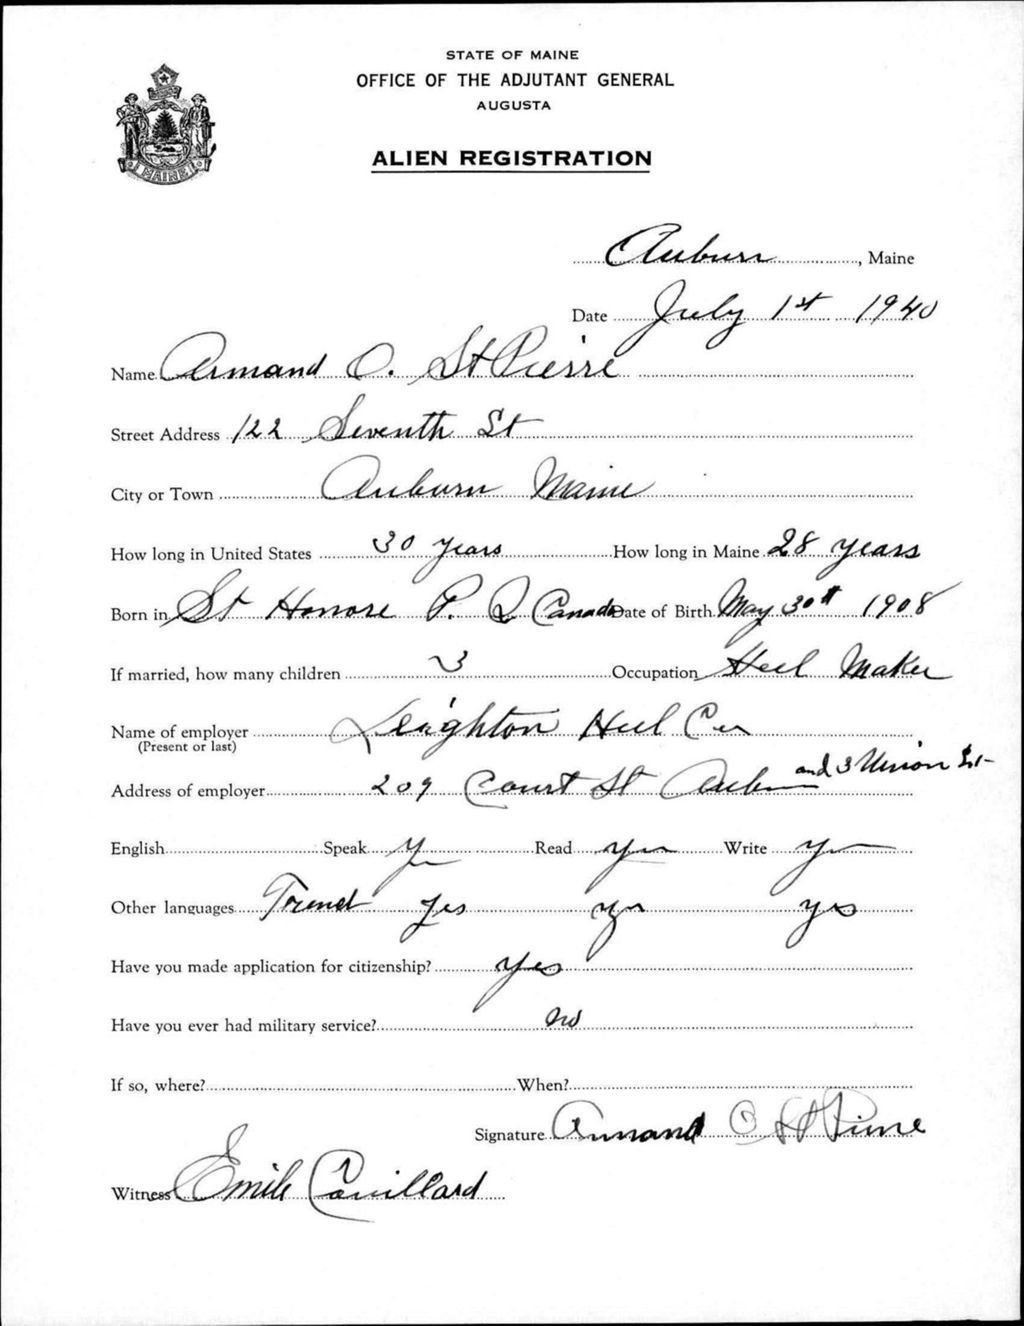 STATE OF MAINE
OFFICE OF THE ADJUTANT GENERAL
AUGUSTA
ALIEN REGISTRATION
MAINE
Auburn, Maine
Date July 1st 1940
Name Armand O. St Pierre
Street Address 122 Seventh St
City or Town Auburn Maine
How long in United States 30 years How long in Maine 28 years
Born in St Honore P. Q Canada Date of Birth May 30th 1908
If married, how many children 3 Occupation Heel Maker
Name of employer Leighton Heel Co
(Present or last)
Address of employer 209 Court St Auburn and 3 Union St
English Speak Yes Read yes Write yes
Other languages French yes yes yes
Have you made application for citizenship? yes
Have you ever had military service? no
If so, where? When?
Signature Armand O St Pierre
Witness Emile